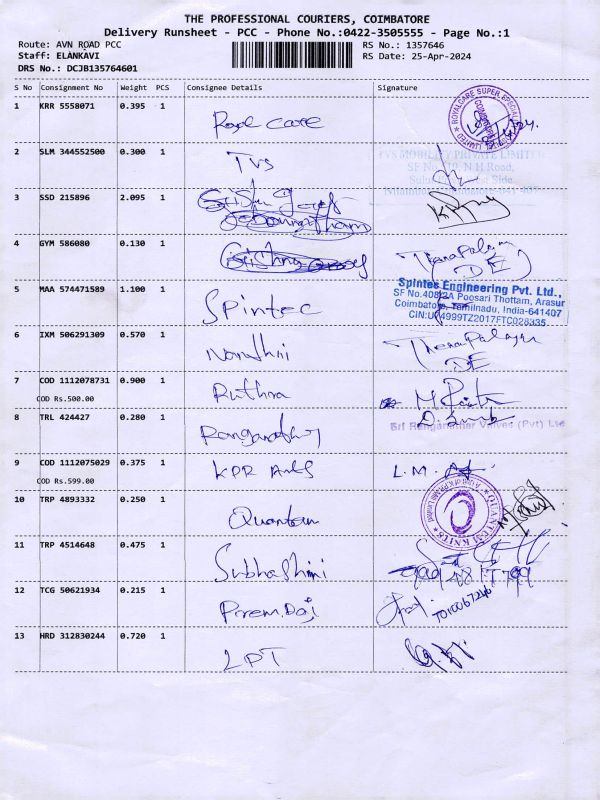 THE PROFESSIONAL COURIERS, COIMBATORE
Delivery Runsheet - PCC - Phone No.:0422-3505555 - Page No.:1
Route: AVN ROAD PCC RS No.: 1357646
Staff: ELANKAVI RS Date: 25-Apr-2024
DRS No.: DCJB135764601
S No Consignment No Weight PCS Consignee Details Signature
1 KRR 5558071 0.395 1 Royal Care
2 SLM 344552500 0.300 1 TVS
TVS MOBILITY PRIVATE LIMITED
3 SSD 215896 2.095 1
4 GYM 586080 0.130 1 DE
5 MAA 574471589 1.100 1 Spintec
Spintes Engineering Pvt. Ltd.,
SF No.408/2A Poosari Thottam, Arasur
Coimbatore, Tamilnadu, India-641407
6 IXM 506291309 0.570 1 DE
7 COD 1112078731 0.900 1 Ruthra
COD Rs.500.00
8 TRL 424427 0.280 1
Sri Ranganather Valves (Pvt) Ltd
9 COD 1112075029 0.375 1 KPR L.M.
COD Rs.599.00
10 TRP 4893332 0.250 1 Quantum
QUANTUM KNITS
11 TRP 4514648 0.475 1 Subhashini
12 TCG 50621934 0.215 1
13 HRD 312830244 0.720 1 LPT